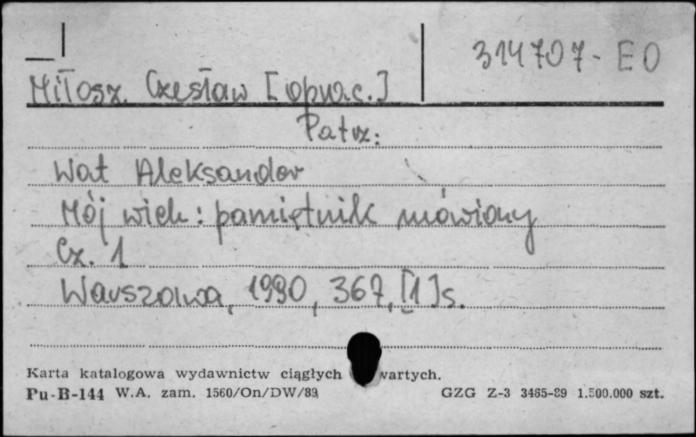 314707-EO
Miłosz Czesław [oprac.]
Patrz:
Wat Aleksander
Mój wiek: pamiętnik mówiony
Cz. 1
Warszawa, 1990, 367, [1]s.
Karta katalogowa wydawnictw ciągłych wartych.
Pu-B-144 W.A. zam. 1560/On/DW/89 GZG Z-3 3465-89 1.500.000 szt.